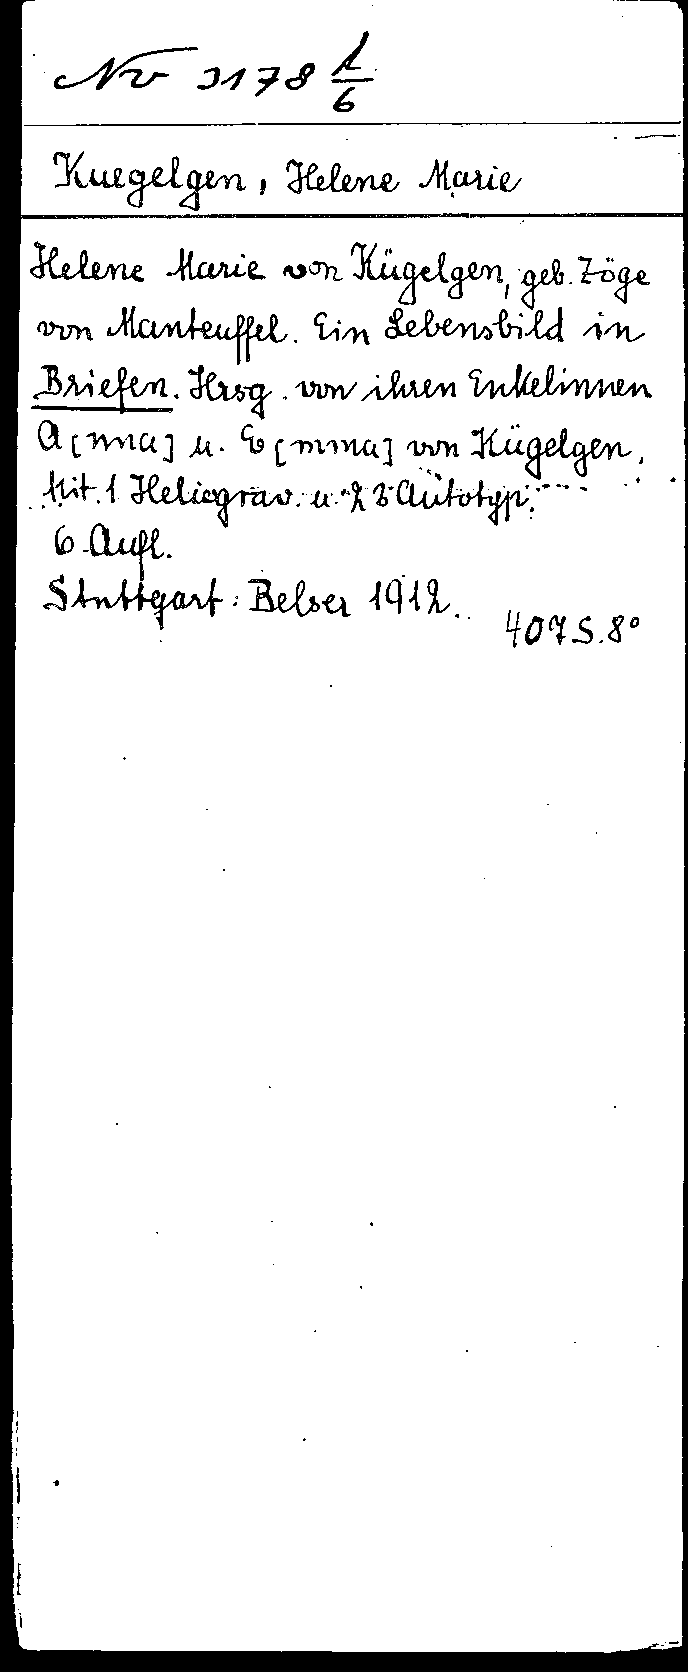 Nv 3178 1/6
Kuegelgen, Helene Marie
Helene Marie von Kügelgen, geb. Zöge
von Manteuffel. Ein Lebensbild in
Briefen. Hrsg. von ihren Enkelinnen
A[nna] u. E[mma] von Kügelgen.
Mit 1 Heliograv. u. Autotyp.
6. Aufl.
Stuttgart: Belser 1912.
407 S. 8°